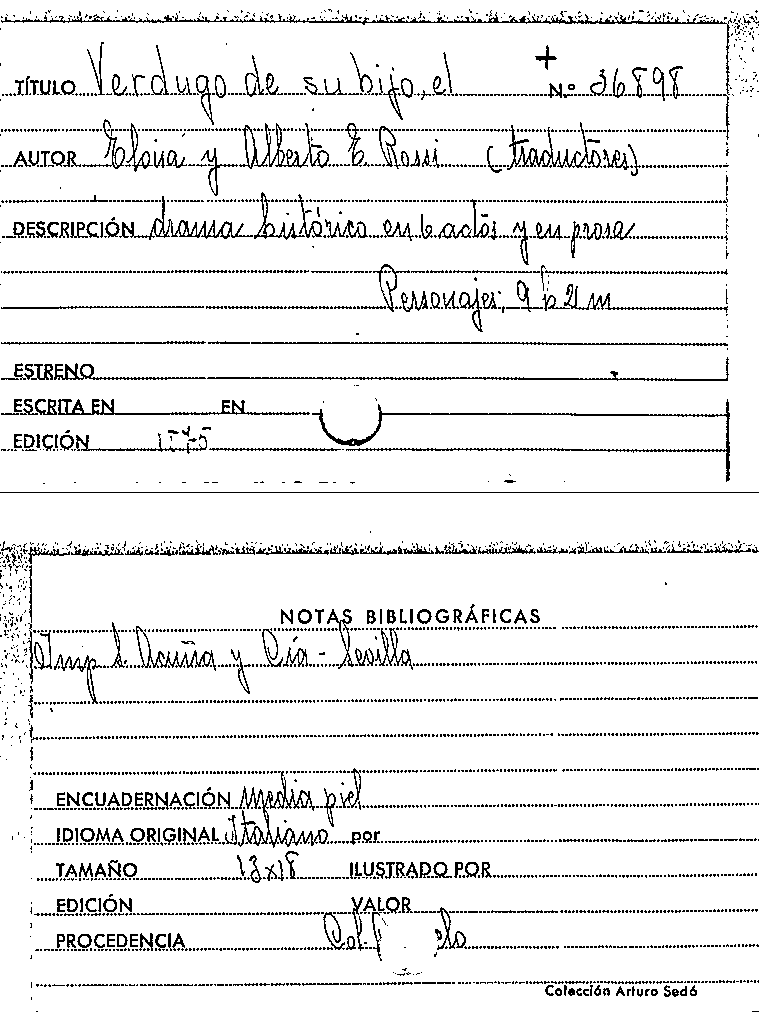 TÍTULO Verdugo de su hijo, el + N.º 36898
AUTOR Eloisa y Alberto E Rossi (traductores)
DESCRIPCIÓN drama histórico en 6 actos y en prosa
Personajes; 9 h 21 m
ESTRENO
ESCRITA EN EN
EDICIÓN
NOTAS BIBLIOGRÁFICAS
Imp S. Acuña y Cía - Sevilla
ENCUADERNACIÓN Media piel
IDIOMA ORIGINAL Italiano por
TAMAÑO 13x18 ILUSTRADO POR
EDICIÓN VALOR
PROCEDENCIA Col.
Colección Arturo Sedó